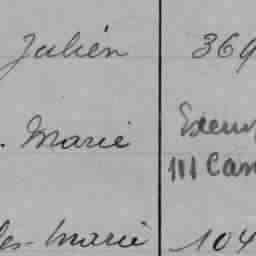 Julién 369
. Marie
111 Can
les-Marie 104